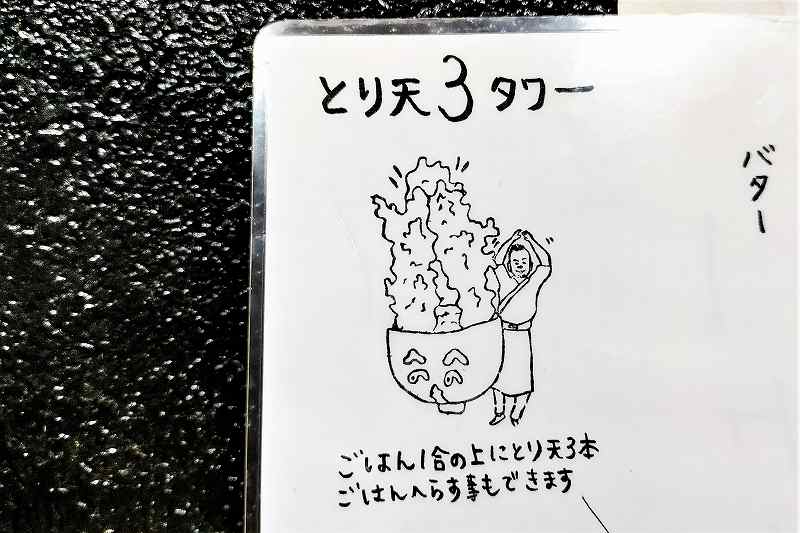 とり天3タワー
バター
ごはん1合の上にとり天3本
ごはんへらす事もできます